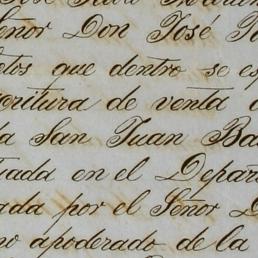 Señor Don José
que dentro se es
critura de venta
San Juan Ba
uada en el Depar
ada por el Señor D
no apoderado de la